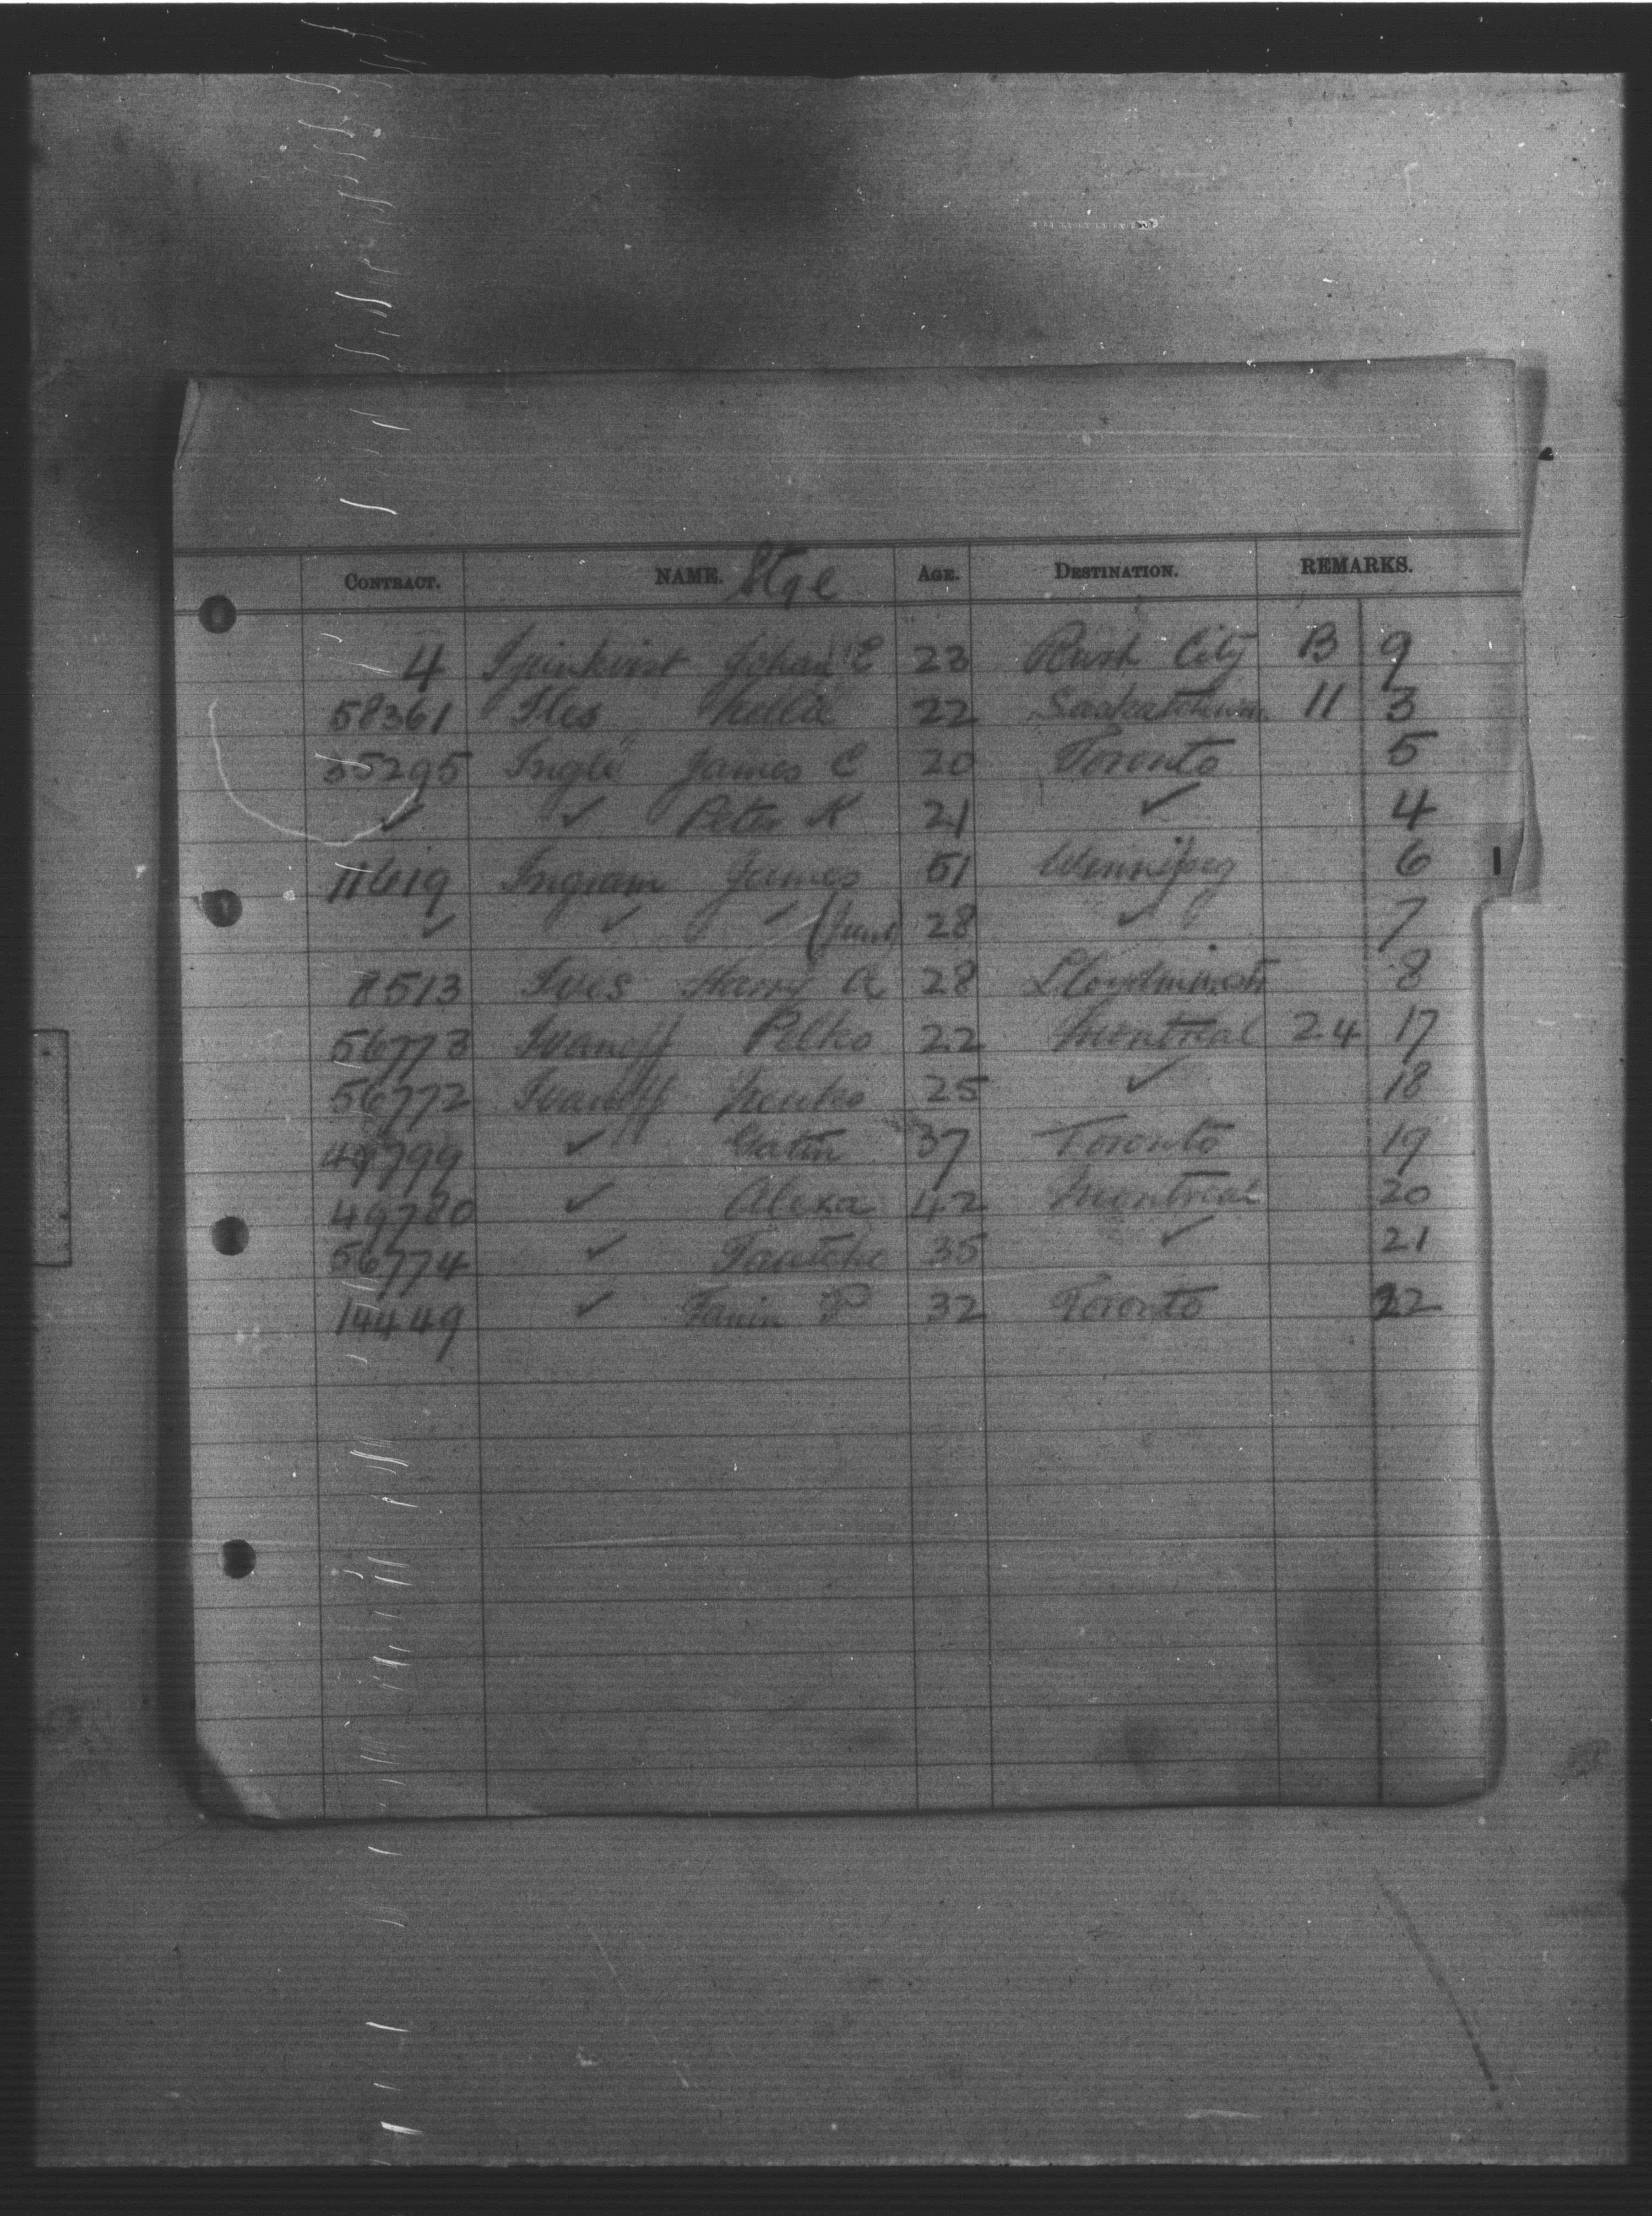 CONTRACT. NAME. Stge AGE. DESTINATION. REMARKS.
4 Johan E 23 Rush City B 9
58361 Iles 22 Saskatchewan 11 3
35295 Ingle James C 20 Toronto 5
✓ ✓ Peter K 21 ✓ 4
11619 Ingram James 51 Winnipeg 6
✓ ✓ ✓ (Junr) 28 ✓ 7
8513 Ives Harry A 28 Lloydminstr 8
56773 Ivanoff Petko 22 Montreal 24 17
56772 Ivanoff 25 ✓ 18
49799 ✓ 37 Toronto 19
49780 ✓ Alexa 42 Montreal 20
56774 ✓ 35 ✓ 21
14449 ✓ 32 Toronto 22